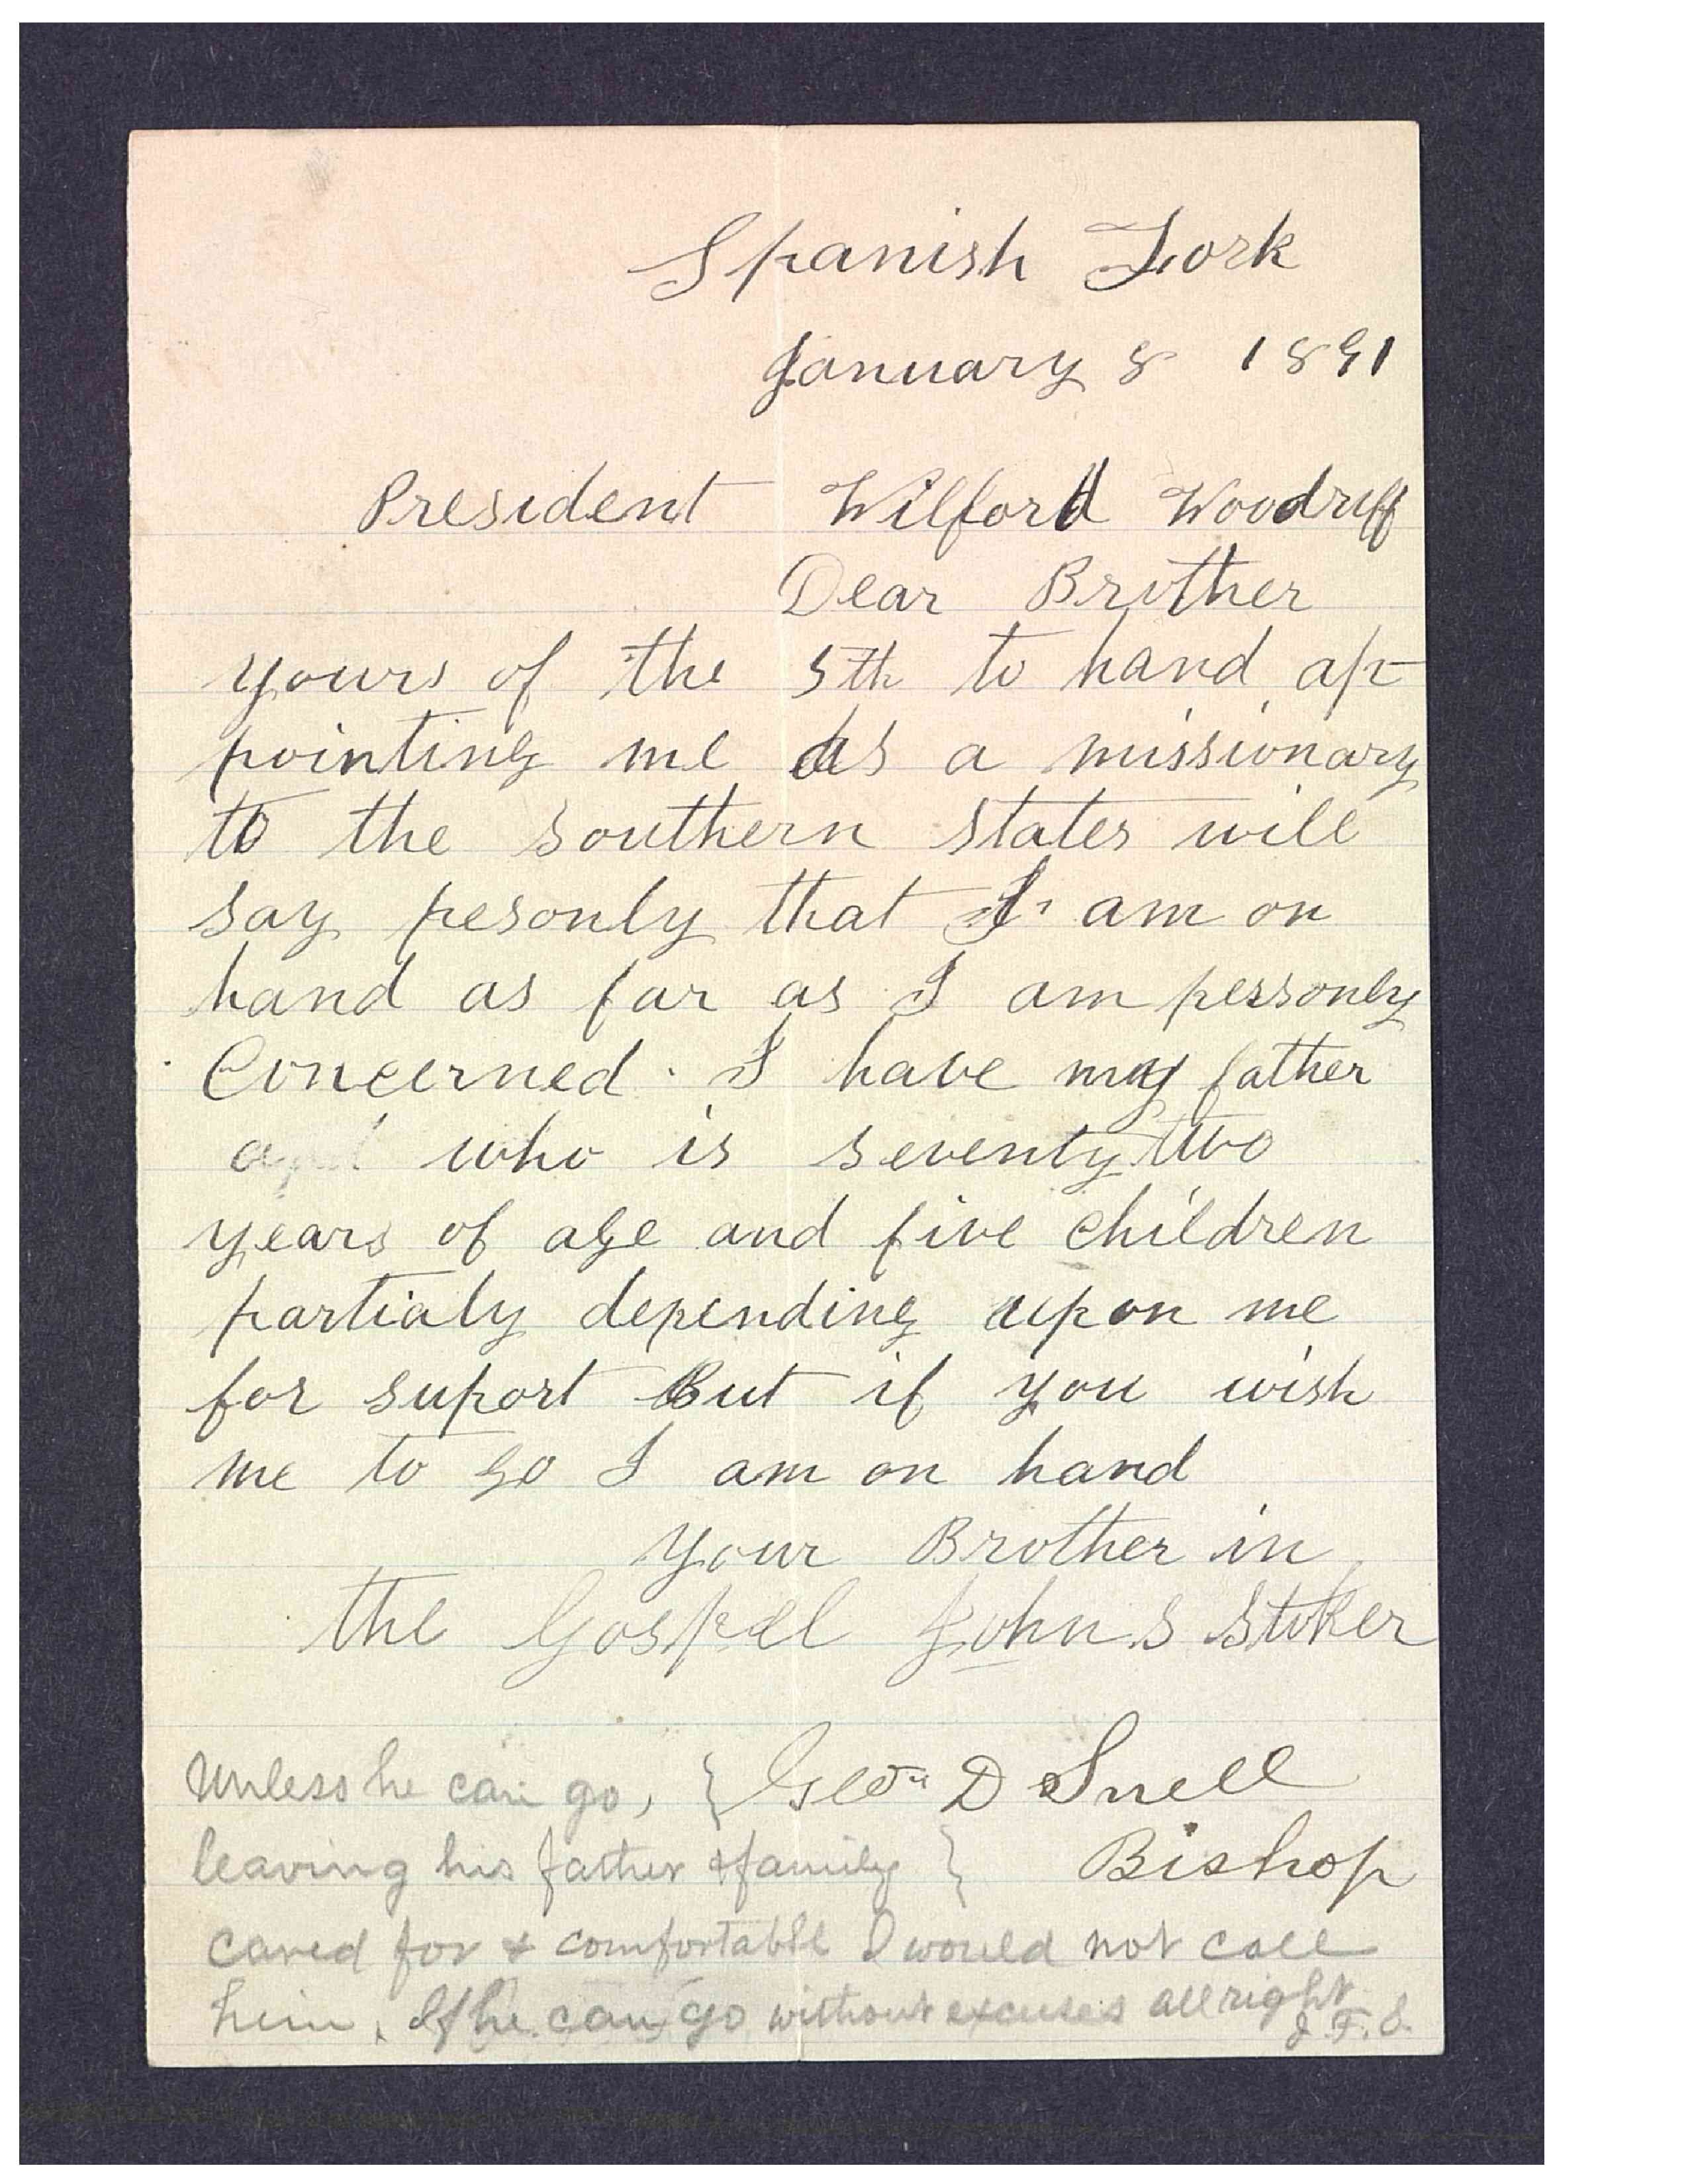 Spanish Fork
January 8 1891
President Wilford Woodruff
Dear Brother
yours of the 5th to hand ap
pointing me as a missionary
to the southern states will
say pesonly that I am on
hand as far as I am pessonly
Concerned. I have my father
who is seventy two
years of age and five children
partialy depending upon me
for suport But if you wish
me to go I am on hand
your Brother in
the Gospel John S Stoker
Geo D Snell
Bishop
Unless he can go,
leaving his father & family
cared for & comfortable I would not call
him. If he can go without excuses all right
J. F. S.